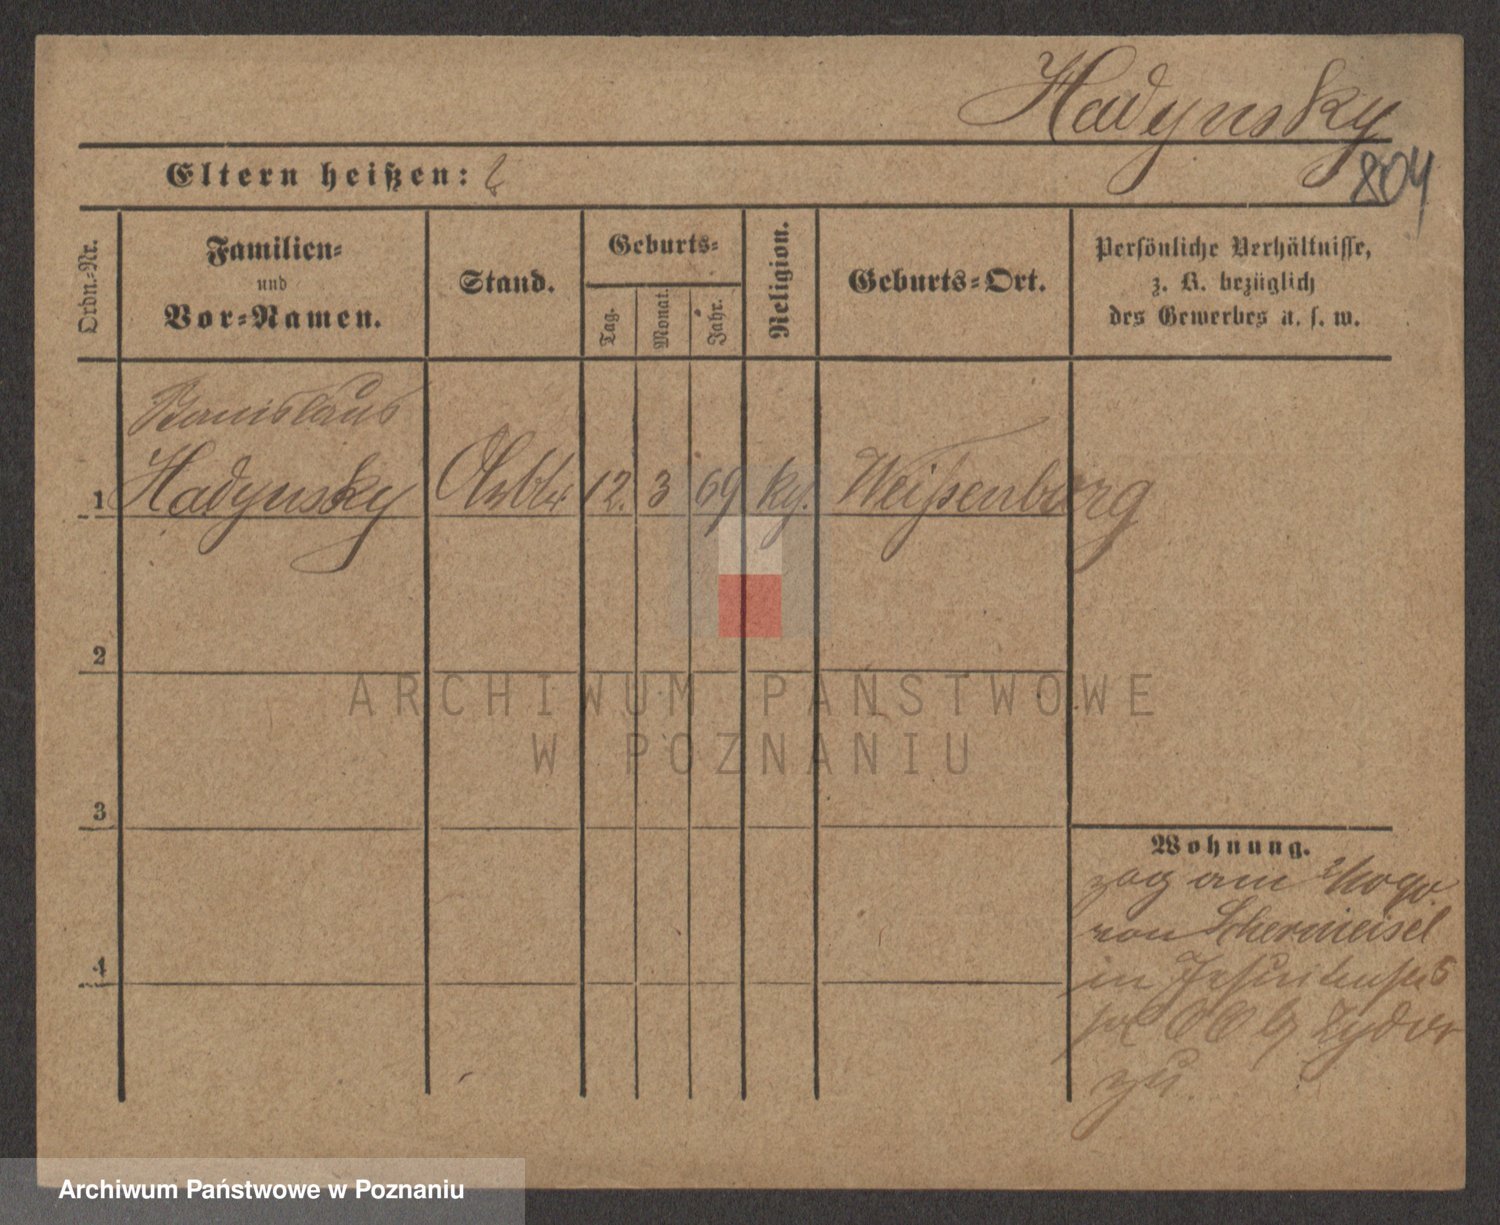 Hadynsky
804
Eltern heißen:
Ordn.-Nr.
Familien-
und
Vor-Namen.
Stand.
Geburts-
Tag.
Monat.
Jahr.
Religion.
Geburts-Ort.
Persönliche Verhältnisse,
z. B. bezüglich
des Gewerbes u. s. w.
Stanislaus
1 Hadynsky 12. 3 69 Weißenburg
2
ARCHIWUM PAŃSTWOWE
W POZNANIU
3
Wohnung.
zog am
von Schermeisel
in 5
4
zu
Archiwum Państwowe w Poznaniu